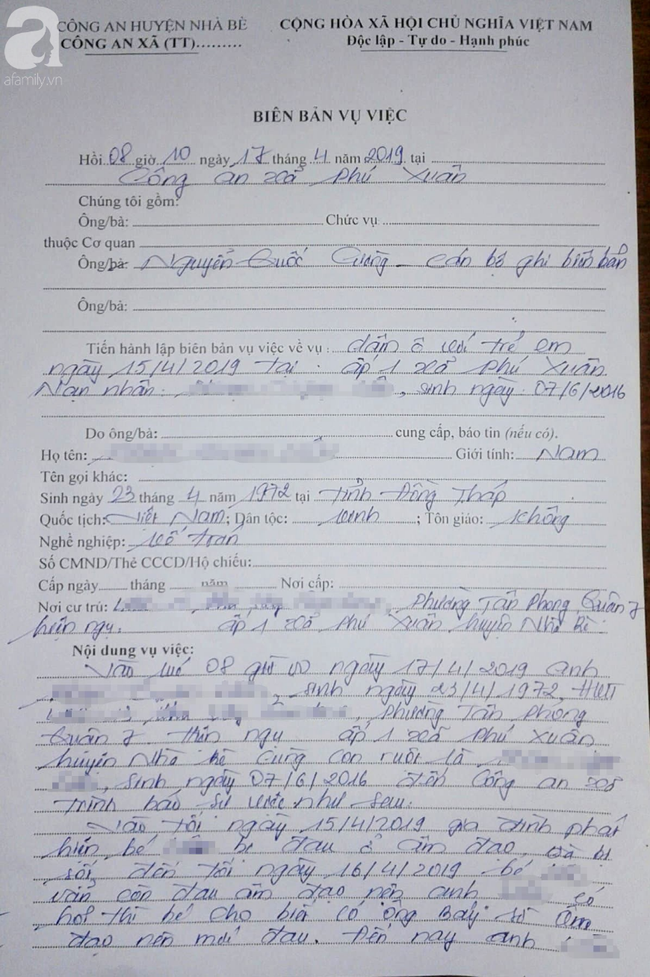 a
afamily.vn
CÔNG AN HUYỆN NHÀ BÈ
CỘNG HÒA XÃ HỘI CHỦ NGHĨA VIỆT NAM
CÔNG AN XÃ (TT).........
Độc lập - Tự do - Hạnh phúc
BIÊN BẢN VỤ VIỆC
Hồi 08 giờ 10 ngày 17 tháng 4 năm 2019 tại
Công an xã Phú Xuân
Chúng tôi gồm:
Ông/bà: Chức vụ
thuộc Cơ quan
Ông/bà: Nguyễn Quốc Cường - cán bộ ghi biên bản
Ông/bà:
Tiến hành lập biên bản vụ việc về vụ: dâm ô với trẻ em
ngày 15/4/2019 tại ấp 1 xã Phú Xuân
Nạn nhân: , sinh ngày: 07/6/2016
Do ông/bà: cung cấp, báo tin (nếu có).
Họ tên: Giới tính: Nam
Tên gọi khác:
Sinh ngày 23 tháng 4 năm 1972 tại tỉnh Đồng Tháp
Quốc tịch: Việt Nam; Dân tộc: kinh; Tôn giáo: không
Nghề nghiệp:
Số CMND/Thẻ CCCD/Hộ chiếu:
Cấp ngày tháng năm Nơi cấp:
Nơi cư trú: , phường Tân Phong, Quận 7
hiện ngụ: ấp 1 xã Phú Xuân huyện Nhà Bè.
Nội dung vụ việc:
Vào lúc 08 giờ 00 ngày 17/4/2019 anh
, sinh ngày 23/4/1972, HKTT
, phường Tân Phong
Quận 7 hiện ngụ ấp 1 xã Phú Xuân
huyện Nhà Bè cùng con ruột là
, sinh ngày 07/6/2016 đến Công an xã
trình báo sự việc như sau:
Vào tối ngày 15/4/2019 gia đình phát
hiện bé bị đau ở âm đạo, và bị
sốt, đến tối ngày 16/4/2019 bé
vẫn còn đau âm đạo nên anh có
hỏi thì bé cho biết có ông Bảy sờ âm
đạo nên mới đau. Đến nay anh